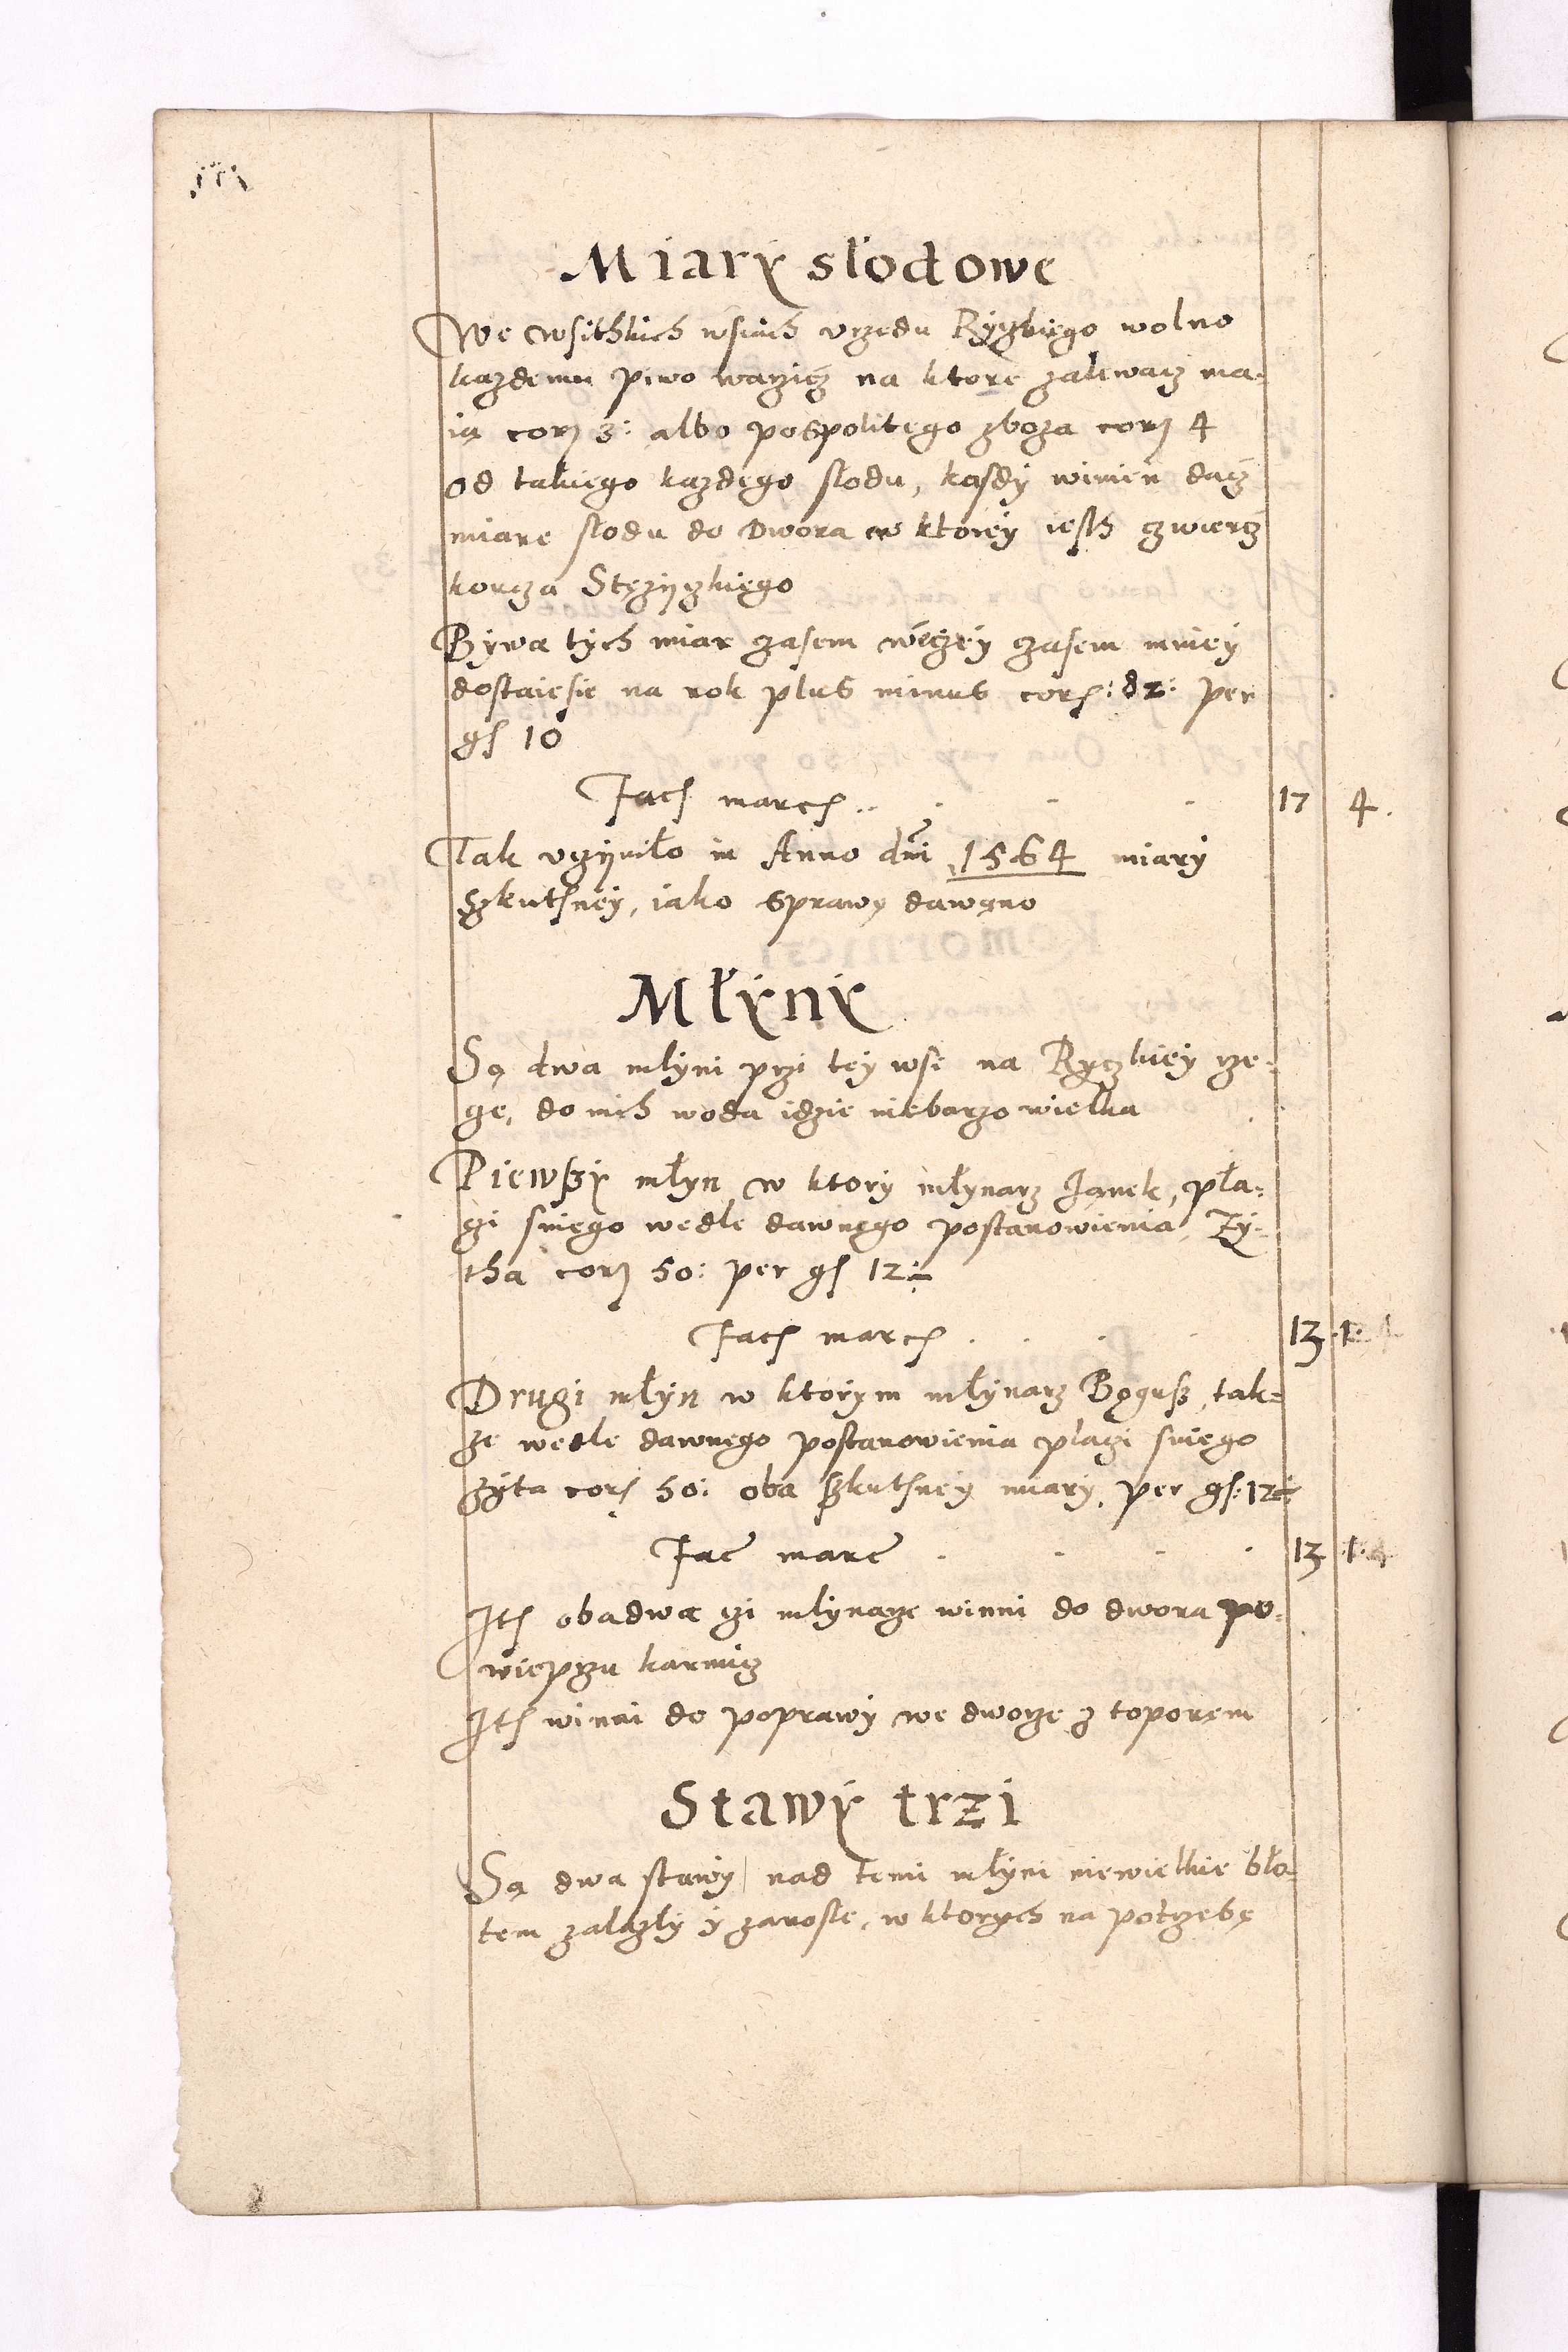 Miary słodowe
We wsithkich wsiach vrzędu Ryczkiego wolno
kazdemu piwo warzicz na ktore zalewacz ma-
ią cor 3: albo pospolitego zboza cor 4
od takiego kazdego slodu, kasdy winien dacz
miare slodu do Dwora w ktorey iesth czwiercz
korcza Stęzyczkiego
Bywa tych miar czasem więczey czasem mniey
dostaie sie na rok plus minus cor: 82: per
gs 10
Fac marc .. 17 4.
Tak vczyniło in Anno dni 1564 miary
Szkuthney, iako sprawę dawano
Młyny
Są dwa młyni przi tey wsi na Ryczkiey rze-
ce, do nich woda idzie niebarzo wielka
Piewszy młyn w ktory młynarz Janek, pła-
czi sniego wedle dawnego postanowienia, Zy-
tha cor 50: per gs 12
Fac marc . 13
Drugi młyn w ktorym młynarz Bogusz, tak-
ze wedle dawnego postanowienia płaczi sniego
zyta cor 50: oba Szkuthney miary, per gs: 12
Fac marc . 13
Ith obadwa czi młynarze winni do dwora po
wieprzu karmicz
Ith winni do poprawy we dworze z toporem
Stawy trzi
Są dwa stawy nad temi młyni niewielkie bło-
tem zalazły y zarosłe, w ktorych na potrzebę